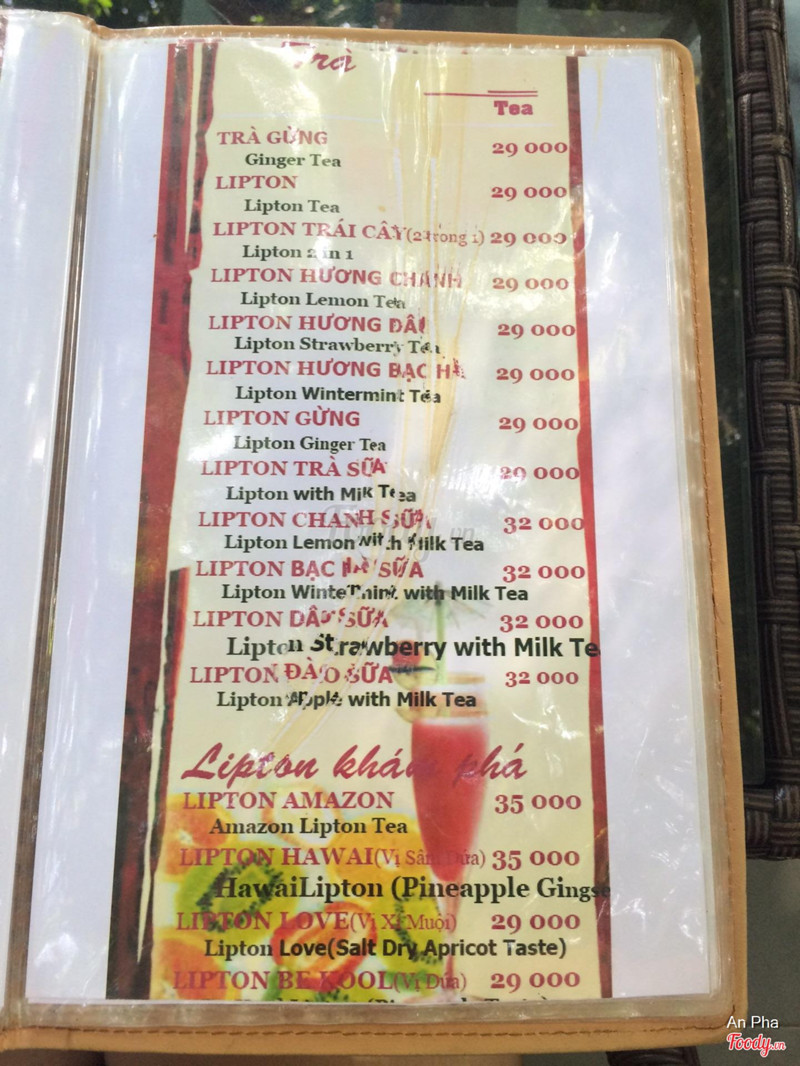 Trà
Tea
TRÀ GỪNG 29 000
Ginger Tea
LIPTON 29 000
Lipton Tea
LIPTON TRÁI CÂY(2 trong 1) 29 000
Lipton 2 in 1
LIPTON HƯƠNG CHANH 29 000
Lipton Lemon Tea
LIPTON HƯƠNG DÂU 29 000
Lipton Strawberry Tea
LIPTON HƯƠNG BẠC HÀ 29 000
Lipton Wintermint Tea
LIPTON GỪNG 29 000
Lipton Ginger Tea
LIPTON TRÀ SỮA 29 000
Lipton with Milk Tea
LIPTON CHANH SỮA 32 000
Lipton Lemon with Milk Tea
LIPTON BẠC HÀ SỮA 32 000
Lipton Wintermint with Milk Tea
LIPTON DÂU SỮA 32 000
Lipton Strawberry with Milk Te
LIPTON ĐÀO SỮA 32 000
Lipton Apple with Milk Tea
Lipton khám phá
LIPTON AMAZON 35 000
Amazon Lipton Tea
LIPTON HAWAI(Vị Sâm Dứa) 35 000
HawaiLipton (Pineapple Gingse
LIPTON LOVE(Vị Xí Muội) 29 000
Lipton Love(Salt Dry Apricot Taste)
LIPTON BE KOOL(Vị Dứa) 29 000
An Pha
Foody.vn